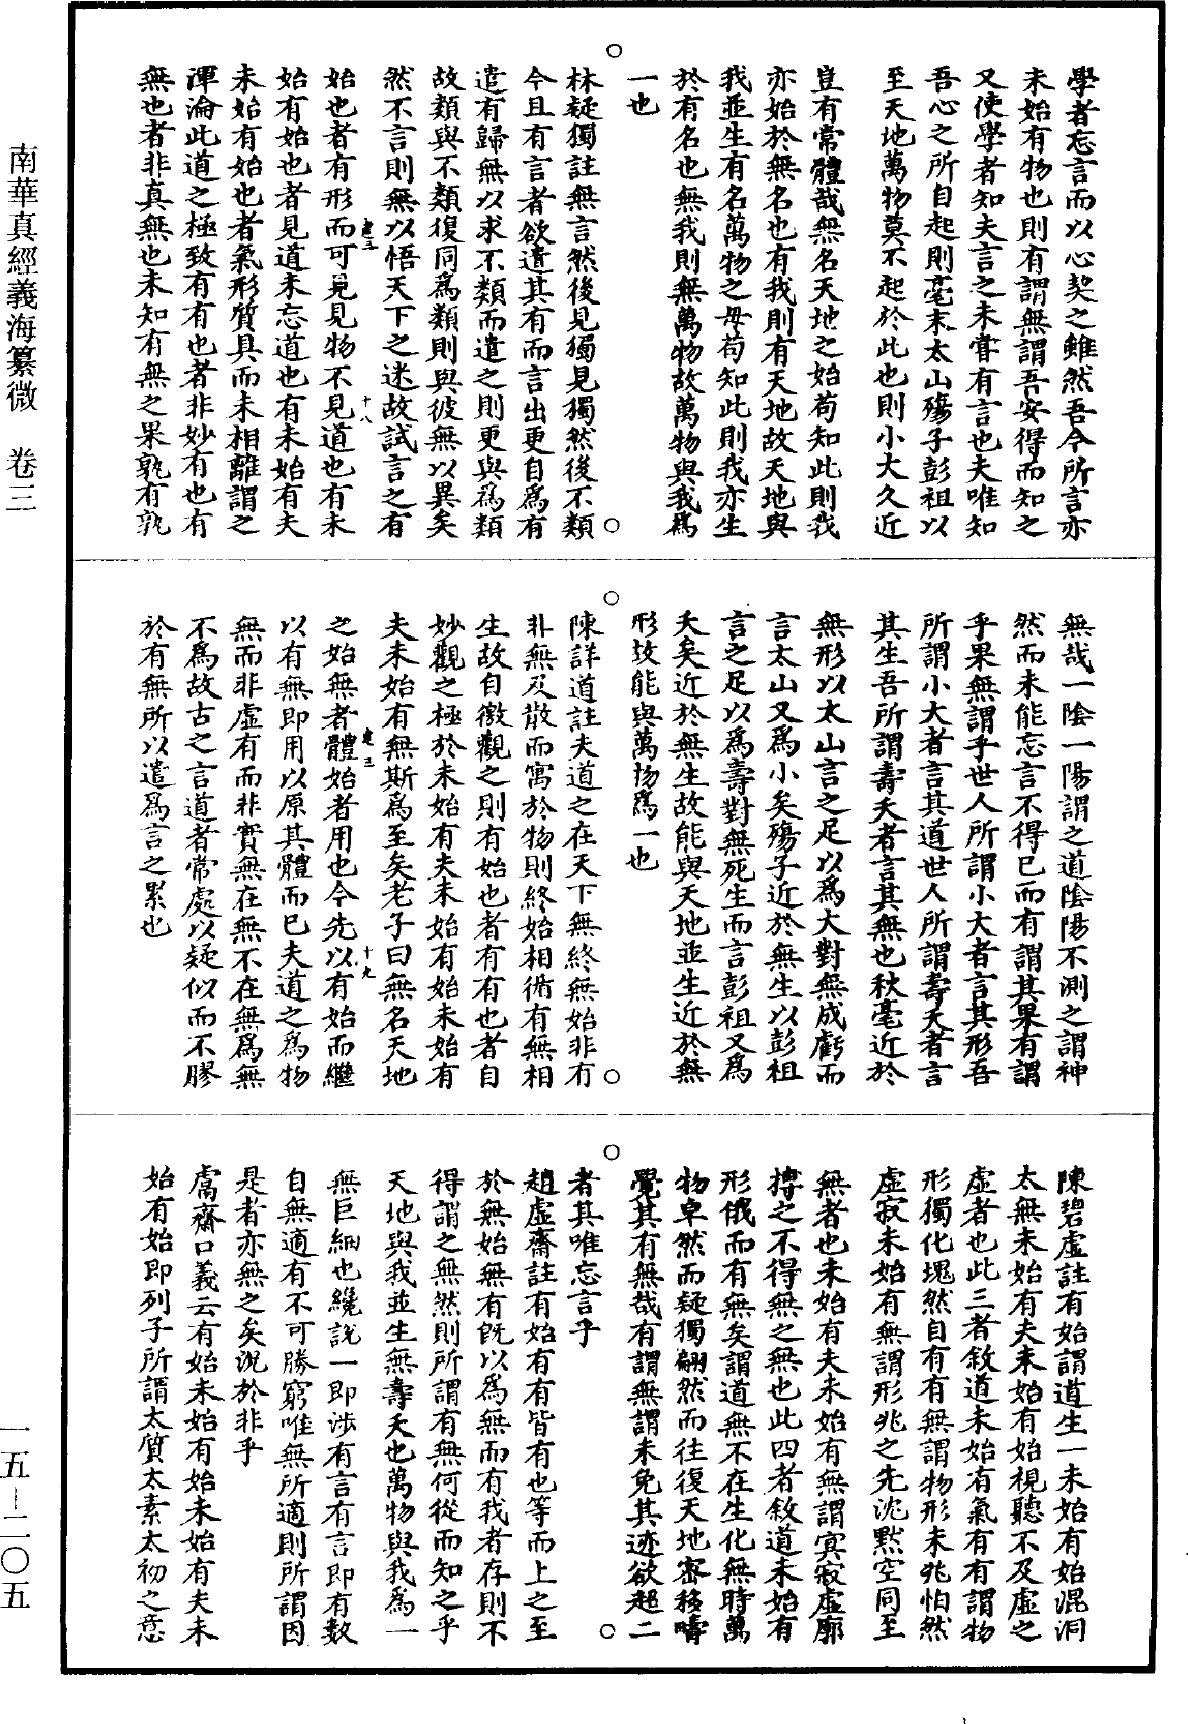 學者忘言而以心契之雖然吾今所言亦
未始有物也則有謂無謂吾安得而知之
又使學者知夫言之未嘗有言也夫唯知
吾心之所自起則毫末太山殤子彭祖以
至天地萬物莫不起於此也則小大久近
豈有常體哉無名天地之始苟知此則我
亦始於無名也有我則有天地故天地與
我並生有名萬物之母苟知此則我亦生
於有名也無我則無萬物故萬物與我為
一也
林疑獨註無言然後見獨見獨然後不類
今且有言者欲遣其有而言出更自為有
遣有歸無以求不類而遣之則更與為類
故類與不類復同為類則與彼無以異矣
然不言則無以悟天下之迷故試言之有
建三
十八
始也者有形而可見見物不見道也有未
始有始也者見道未忘道也有未始有夫
未始有始也者氣形質具而未相離謂之
渾淪此道之極致有有也者非妙有也有
無也者非真無也未知有無之果孰有孰
無哉一陰一陽謂之道陰陽不測之謂神
然而未能忘言不得已而有謂其果有謂
乎果無謂乎世人所謂小大者言其形吾
所謂小大者言其道世人所謂壽夭者言
其生吾所謂壽夭者言其無也秋毫近於
無形以太山言之足以為大對無成虧而
言太山又為小矣殤子近於無生以彭祖
言之足以為壽對無死生而言彭祖又為
夭矣近於無生故能與天地並生近於無
形故能與萬物為一也
陳詳道註夫道之在天下無終無始非有
非無及散而寓於物則終始相循有無相
生故自徼觀之則有始也者有有也者自
妙觀之極於未始有夫未始有始未始有
夫未始有無斯為至矣老子曰無名天地
建三
十九
之始無者體始者用也今先以有始而繼
以有無即用以原其體而已夫道之為物
無而非虛有而非實無在無不在無為無
不為故古之言道者常處以疑似而不膠
於有無所以遣為言之累也
陳碧虛註有始謂道生一未始有始混洞
太無未始有夫未始有始視聽不及虛之
虛者也此三者敘道未始有氣有有謂物
形獨化塊然自有有無謂物形未兆怕然
虛寂未始有無謂形兆之先沈默空同至
無者也未始有夫未始有無謂冥寂虛廓
摶之不得無之無也此四者敘道未始有
形俄而有無矣謂道無不在生化無時萬
物卓然而疑獨翩然而往復天地密移疇
覺其有無哉有謂無謂未免其迹欲超二
者其唯忘言乎
趙虛齋註有始有有皆有也等而上之至
於無始無有既以為無而有我者存則不
得謂之無然則所謂有無何從而知之乎
天地與我並生無壽夭也萬物與我為一
無巨細也纔說一即涉有言有言即有數
自無適有不可勝窮唯無所適則所謂因
是者亦無之矣況於非乎
鬳齋口義云有始未始有始未始有夫未
始有始即列子所謂太質太素太初之意
南華真經義海纂微　卷三
一五—二〇五